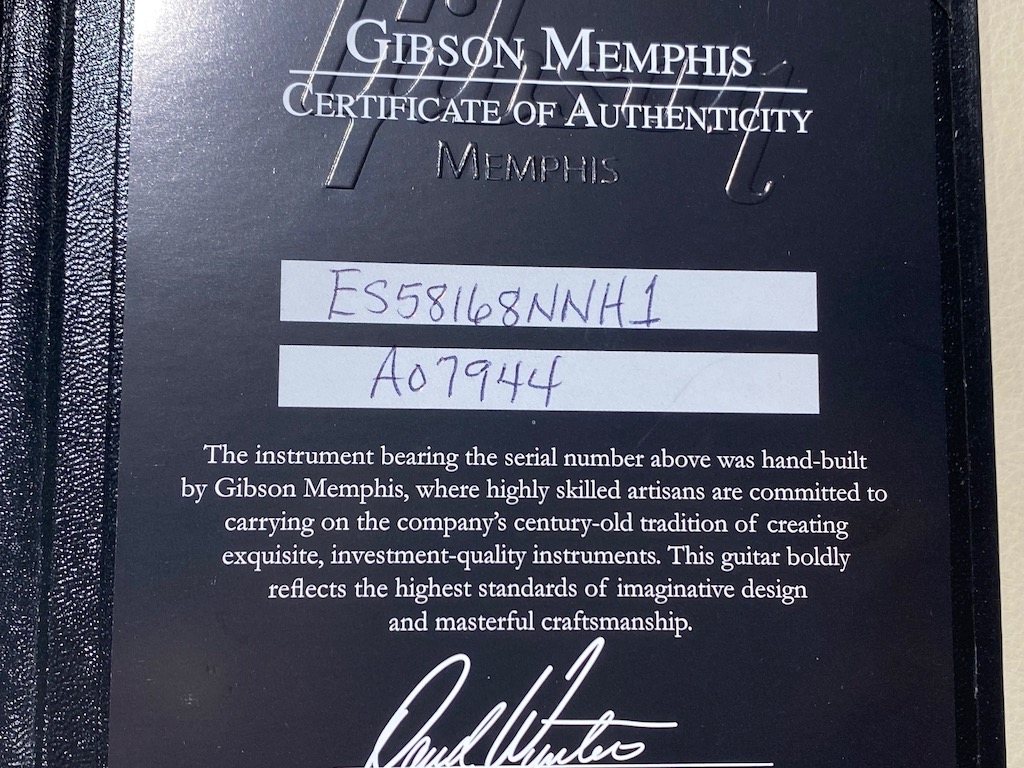 Gibson
GIBSON MEMPHIS
CERTIFICATE OF AUTHENTICITY
MEMPHIS
ES58168NNH1
A07944
The instrument bearing the serial number above was hand-built
by Gibson Memphis, where highly skilled artisans are committed to
carrying on the company's century-old tradition of creating
exquisite, investment-quality instruments. This guitar boldly
reflects the highest standards of imaginative design
and masterful craftsmanship.